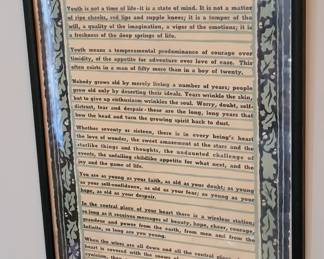 Youth is not a time of life-it is a state of mind. It is not a matter
of ripe cheeks, red lips and supple knees; it is a temper of the
will, a quality of the imagination, a vigor of the emotions; it is
a freshness of the deep springs of life.
Youth means a temperamental predominance of courage over
timidity, of the appetite for adventure over love of ease. This
often exists in a man of fifty more than in a boy of twenty.
Nobody grows old by merely living a number of years; people
grow old only by deserting their ideals. Years wrinkle the skin,
but to give up enthusiasm wrinkles the soul. Worry, doubt, self-
distrust, fear and despair-these are the long, long years that
bow the head and turn the growing spirit back to dust.
Whether seventy or sixteen, there is in every being's heart
the love of wonder, the sweet amazement at the stars and the
starlike things and thoughts, the undaunted challenge of
events, the unfailing childlike appetite for what next, and the
joy and the game of life.
You are as young as your faith, as old as your doubt; as young
as your self-confidence, as old as your fear; as young as your
hope, as old as your despair.
In the central place of your heart there is a wireless station;
so long as it receives messages of beauty, hope, cheer, courage,
grandeur and power from the earth, from men and from the
Infinite, so long as you are young.
When the wires are all down and all the central place
heart is covered with the snows of